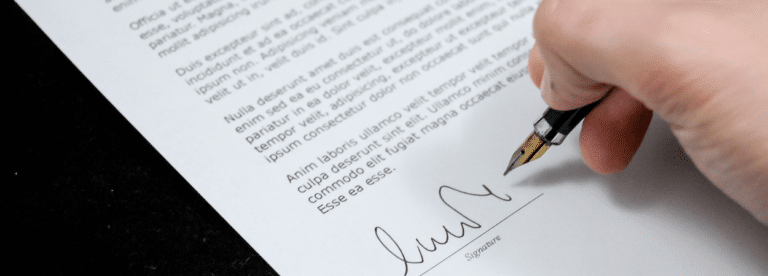 enim
Officia ut e
esse, voluptat
pariatur. Magna,
mollit adipisicing irure
Duis excepteur sint ad, con
incididunt et ad ea occaecat c
ipsum non. Adipisicing veniam n
velit ut in, velit duis id. Sint culpa i
Nulla deserunt amet duis est consequat co
enim sed ea eu consectetur ut, do dolore lab
pariatur in ea dolor velit, excepteur mollit enim,
tempor velit, adipisicing, excepteur ut excepteur tem
ipsum consectetur dolor non occaecat sunt qui nulla
Anim laboris ullamco velit tempor velit tempor
culpa deserunt sint elit. Ullamco minim com
commodo elit fugiat magna occaecat eius
Esse ea esse.
Signature